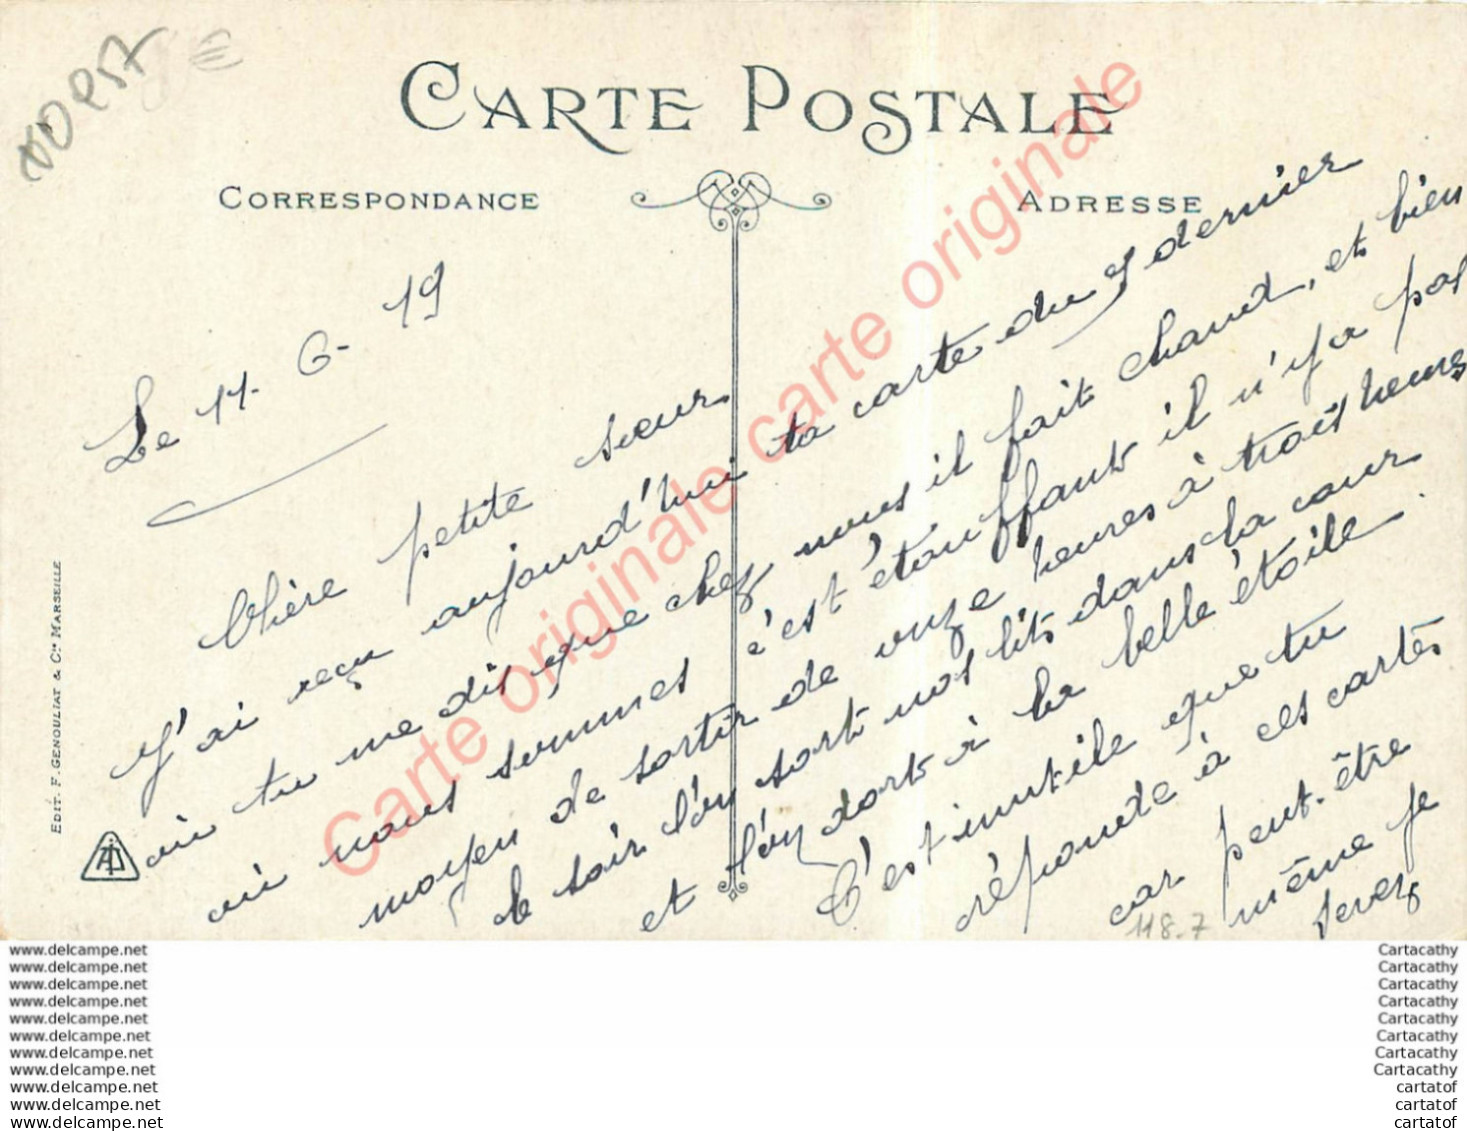 CARTE POSTALE
CORRESPONDANCE
ADRESSE
Le 11-6-19
Chère petite sœur
J'ai reçu aujourd'hui ta carte du 5 dernier
où tu me dis que chez nous il fait chaud, et bien
où nous sommes c'est étouffant il n'y a pas
moyen de sortir de onze heures à trois heures
le soir l'on sort nos lits dans la cour
et l'on dort à la belle étoile.
C'est inutile que tu
réponde à ces cartes
car peut-être
même je
serez
118.7
EDIT. F. GENOULIAT & Cie MARSEILLE
Carte originale carte originale
www.delcampe.net
www.delcampe.net
www.delcampe.net
www.delcampe.net
www.delcampe.net
www.delcampe.net
www.delcampe.net
www.delcampe.net
www.delcampe.net
www.delcampe.net
www.delcampe.net
Cartacathy
Cartacathy
Cartacathy
Cartacathy
Cartacathy
Cartacathy
Cartacathy
Cartacathy
cartatof
cartatof
cartatof